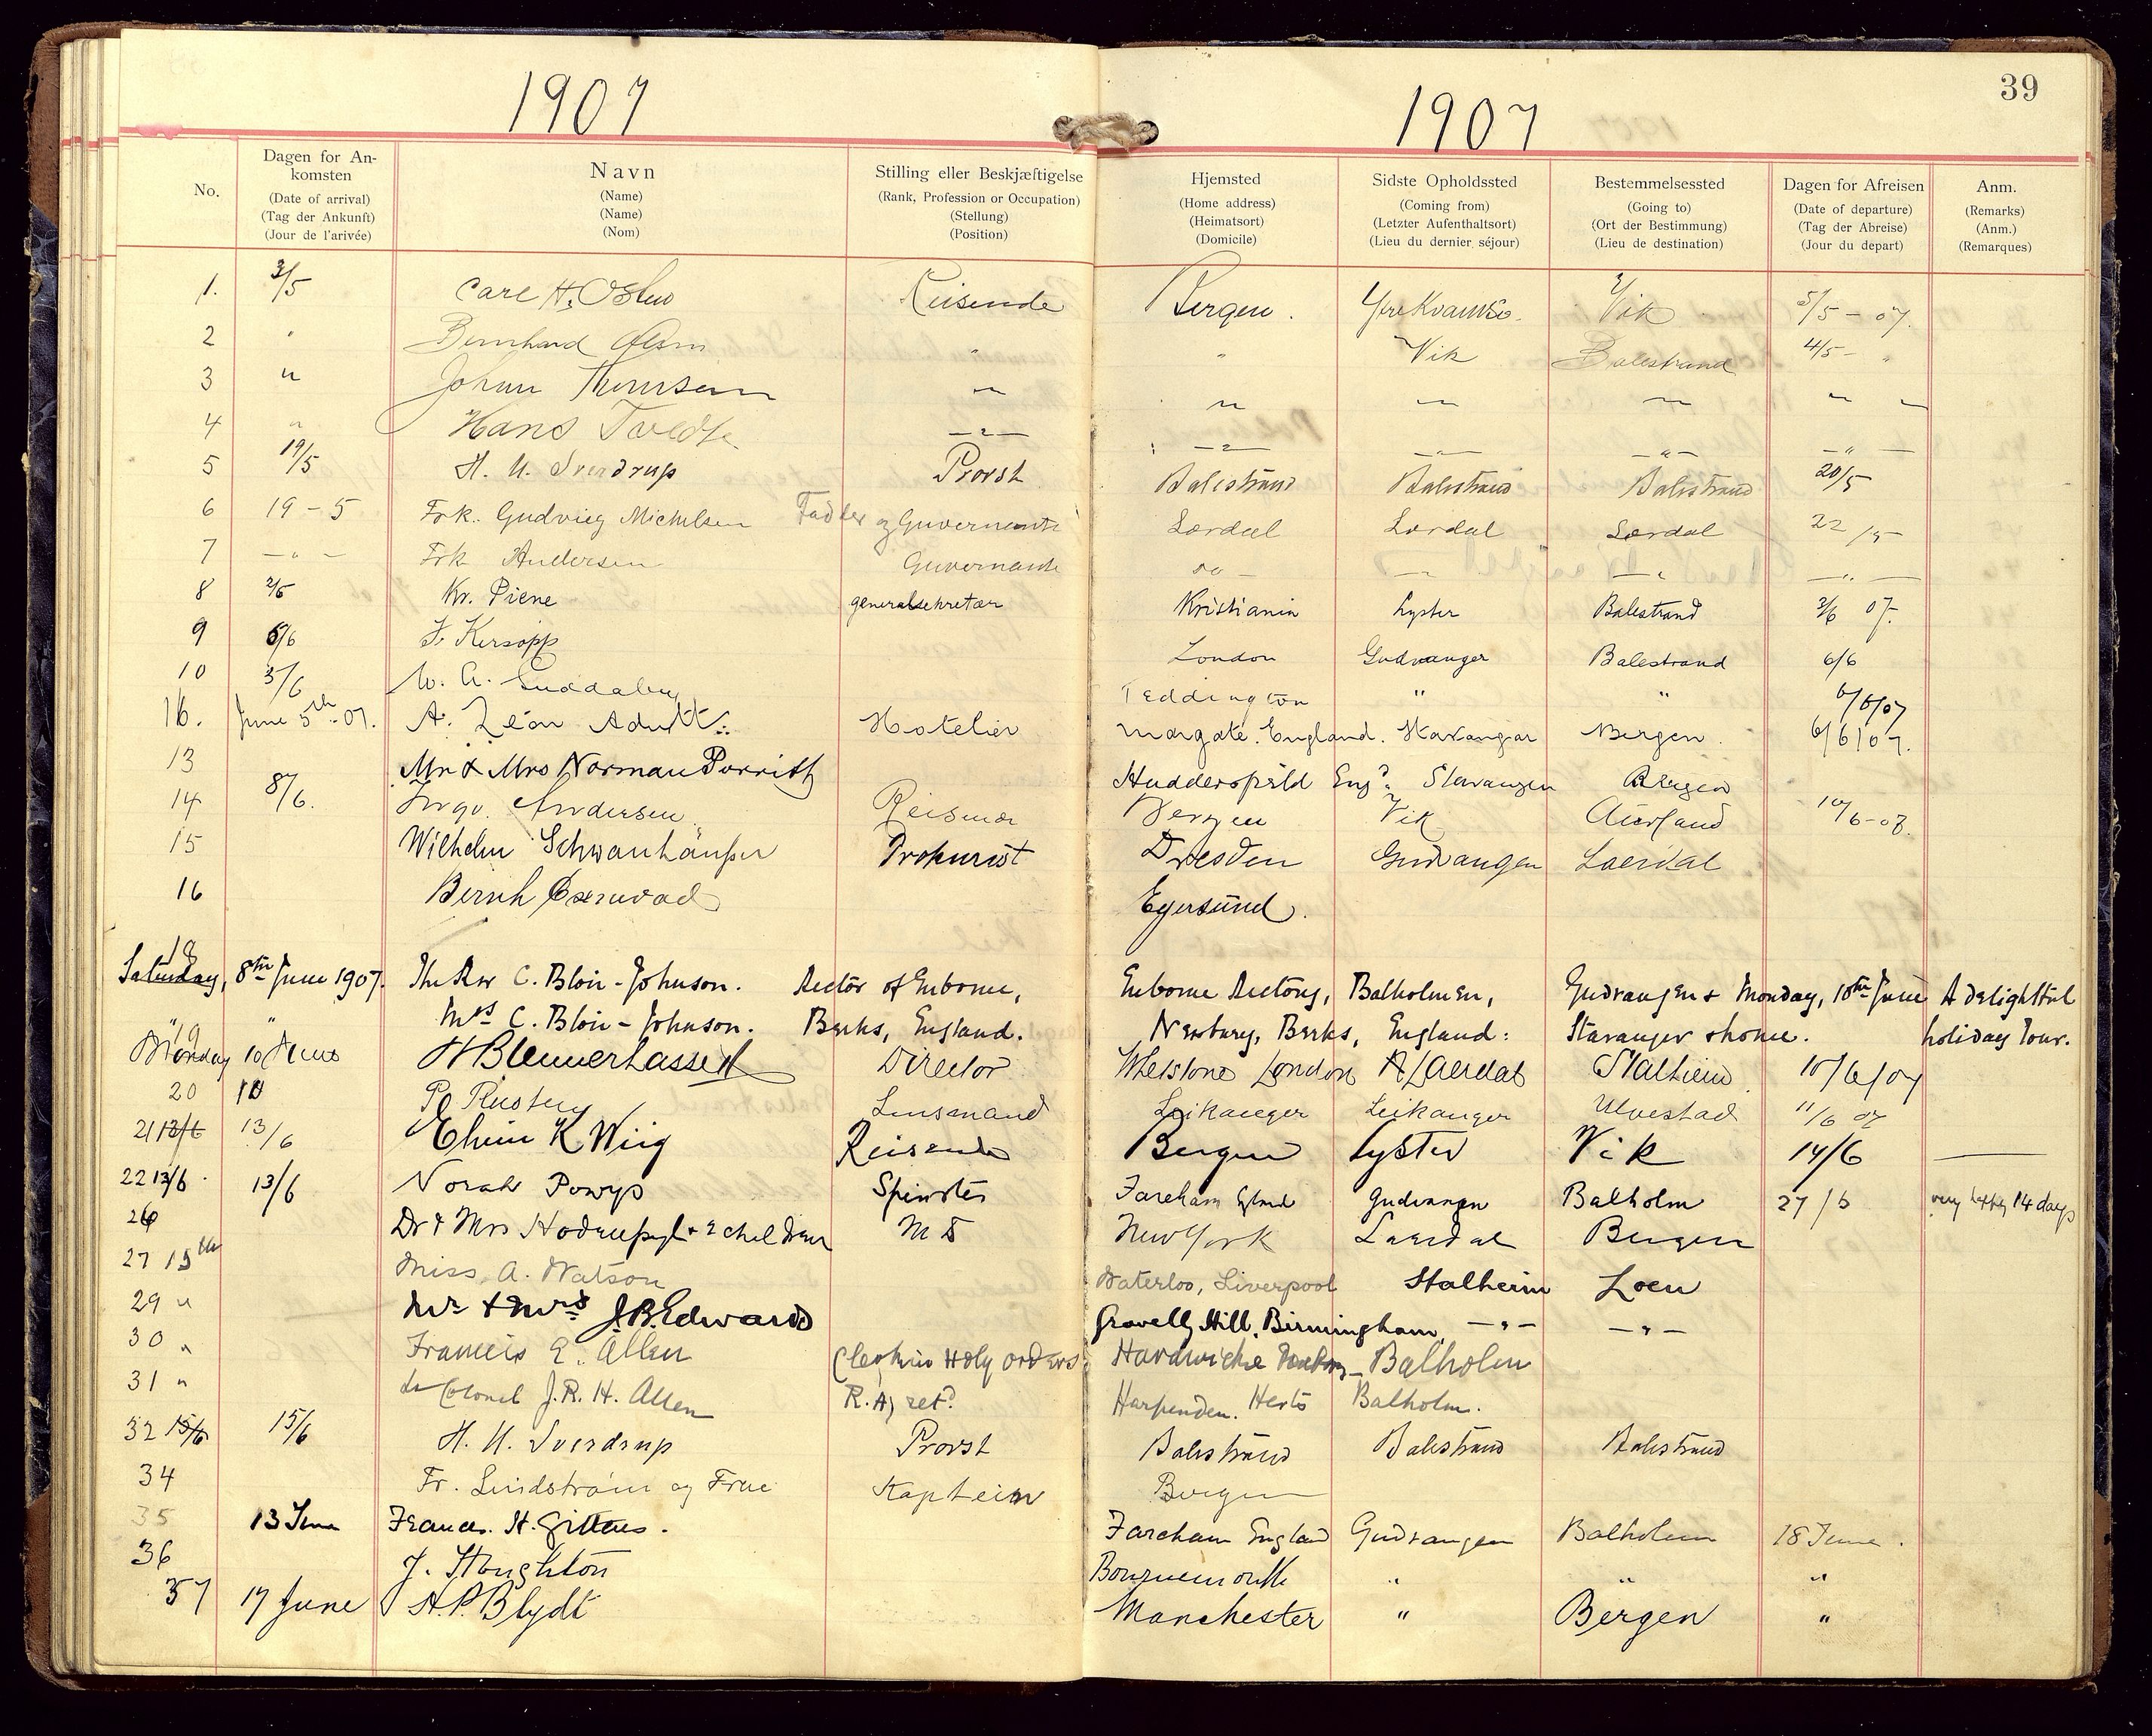 39
1907 1907
No. Dagen for An- Navn Stilling eller Beskjæftigelse Hjemsted Sidste Opholdssted Bestemmelsessted Dagen for Afreisen Anm.
komsten
(Date of arrival) (Name) (Rank, Profession or Occupation) (Home address) (Coming from) (Going to) (Date of departure) (Remarks)
(Tag der Ankunft) (Name) (Stellung) (Heimatsort) (Letzter Aufenthaltsort) (Ort der Bestimmung) (Tag der Abreise) (Anm.)
(Jour de l'arivée) (Nom) (Position) (Domicile) (Lieu du dernier séjour) (Lieu de destination) (Jour du depart) (Remarques)
1. 3/5 Carl H. Reisende Bergen. Vik 5/5 - 07.
2 " Bernhard " " Vik Balestrand 4/5 - "
3 " Johan Thomsen " " " " " "
4 " Hans Tvedte " " " " "
5 19/5 H. U. Sverdrup Provst Balestrand Balestrand Balestrand 20/5
6 19 - 5 Frk. Michelsen og Guvernante Lærdal Lærdal Lærdal 22/5
7 - " - Frk Andersen Guvernante do - - " - - " - - " -
8 2/6 Kr. Piene generalsekretær Kristiania Lyster Balestrand 3/6 07.
9 6/6 F. Kersopp London Gudvangen Balestrand 6/6
10 5/6 W. A. Teddington " " 6/6/07
16. June 5th - 07. A. Léon Adutt. Hotelier Margate. England. Stavanger Bergen. 6/6/07.
13 Mr & Mrs Norman Porritt Huddersfield Engd. Stavanger Bergen
14 8/6. Andersen Reisende Bergen Vik Aurland 10/6 - 07.
15 Wilhelm Schwanhäußer Prokurist Dresden Gudvangen Laerdal
16 Bernh Egersund.
18
Saturday, 8th June 1907. The Rev C. Bloir-Johnson. Rector of Enborne, Enborne Rectory, Balholmen, Gudvangen & Monday, 10th June A delightful
Mrs C. Bloir-Johnson. Berks, England. Newbury, Berks, England: Stavanger & home. holiday tour.
19 Monday 10 June H Blennerhassett Director Whetstone London Laerdal Stalheim 10/6/07
20 10 Lensmand Leikanger Leikanger Ulvestad 11/6 07
21 13/6 13/6 K Wiig Reisende Bergen Lyster Vik 14/6
22 13/6 13/6 Norah Powys Spinster Fareham Gudvangen Balholm 27/6 very happy 14 days
26 Dr & Mrs Hodenpyl & 2 children M D New York Laerdal Bergen
27 15th Miss A. Watson Waterloo, Liverpool Stalheim Loen
29 " Mr & Mrs J. B. Edwards Gravelly Hill, Birmingham - " - - " -
30 " Francis E. Allen Holy orders Hardwicke Balholm
31 " Lt Colonel J. R. H. Allen R. A, retd Harpenden. Herts Balholm.
32 15/6 15/6 H. U. Sverdrup Provst Balestrand Balestrand Balestrand
34 Fr. Lindstrøm og Frue Kaptein Bergen
35 13 June Frances. H. Gittens. Fareham England Gudvangen Balholm 18 June.
36 J. Houghton Bournemouth " " "
37 17 June H. P. Blydt Manchester " Bergen "